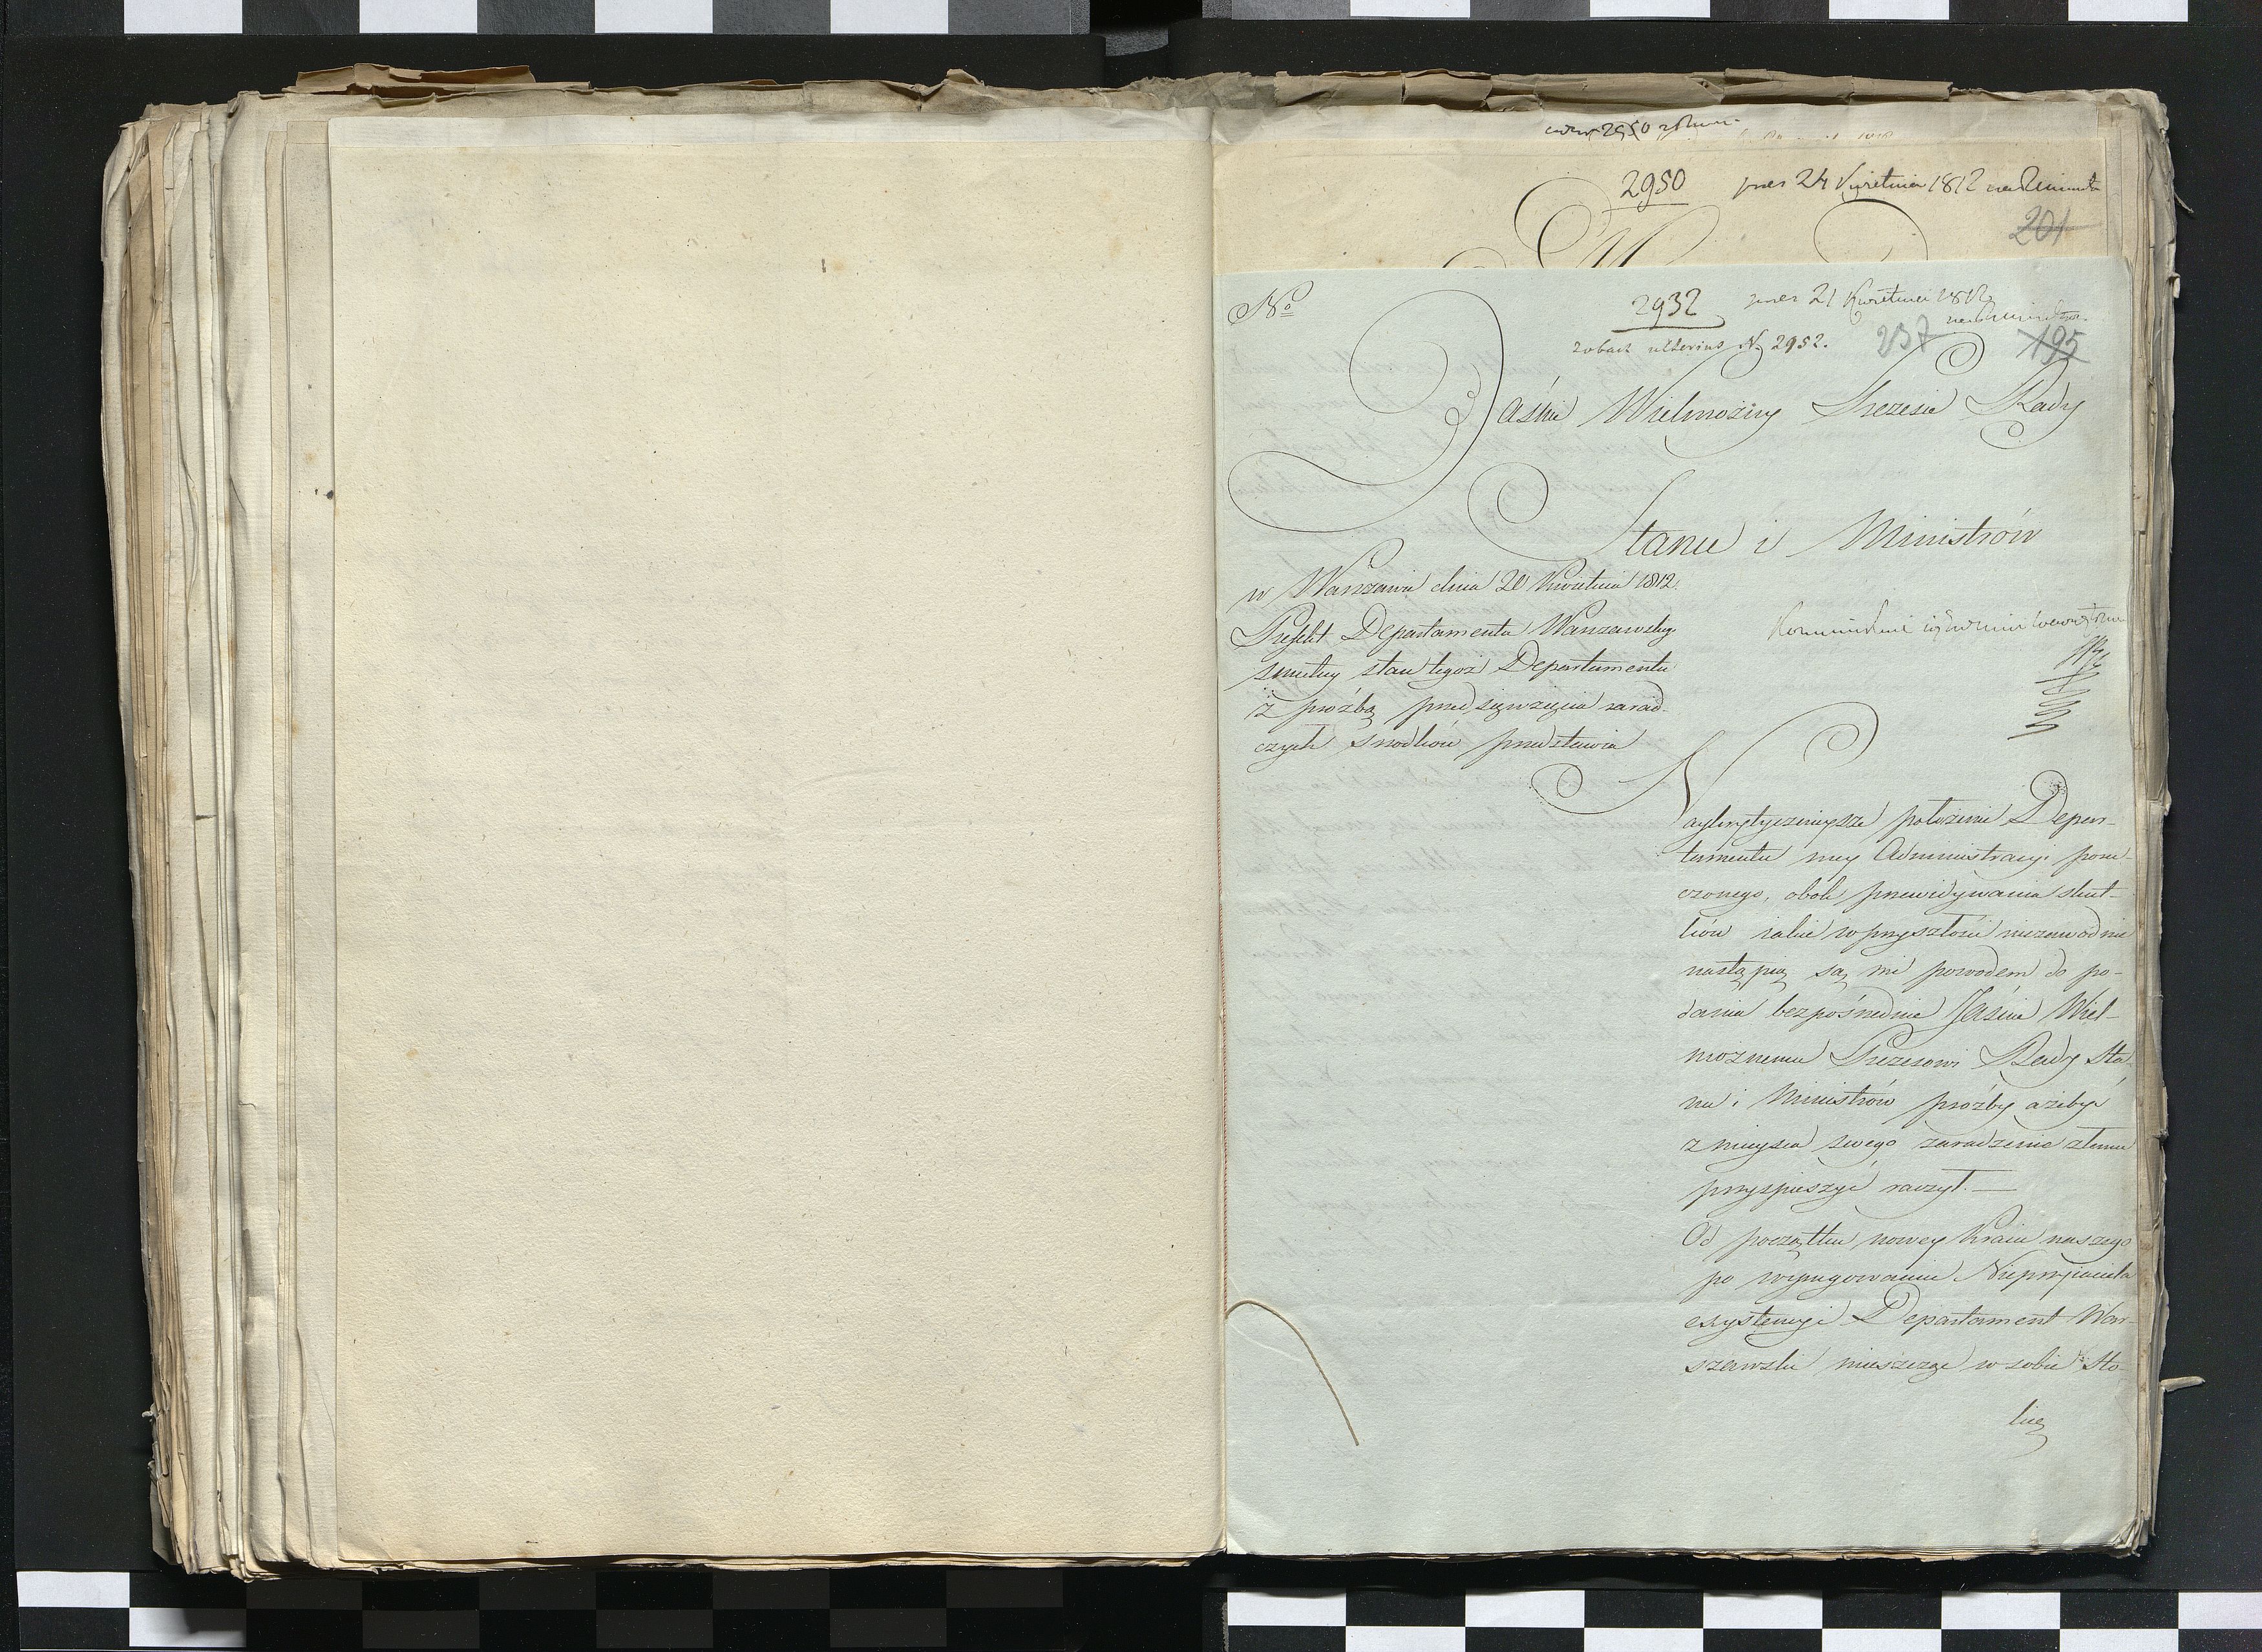 2950 24 Kwietnia 1812
201
No
2932 21 Kwietnia 1812
zobacz ulterius N. 2952. 237 195
Jaśnie Wielmożny Prezesie Rady
Stanu i Ministrów
w Warszawie dnia 20 Kwietnia 1812
Prefekt Departamentu Warszawskig
smutny stan tegoż Departamentu
z proźbą przedsięwzięcia zarad-
czych srodków przedstawia
Naykrytycznieysze położenie Depar-
tamentu mey Administracyi poru-
czonego, obok przewidywania skut-
ków iakie w przyszłości niezawodnie
nastąpią są mi powodem do po-
dania bezpośrednie Jaśnie Wiel-
możnemu Prezesowi Rady Sta-
nu i Ministrów proźby ażeby
z mieysca swego zaradzenie złemu
przyspieszyć raczył. —
Od początku nowey Kraiu naszego
po wyrugowaniu Nieprzyiaciela
exystencyi Departament War-
szawski mieszcząc w sobie Sto-
licę